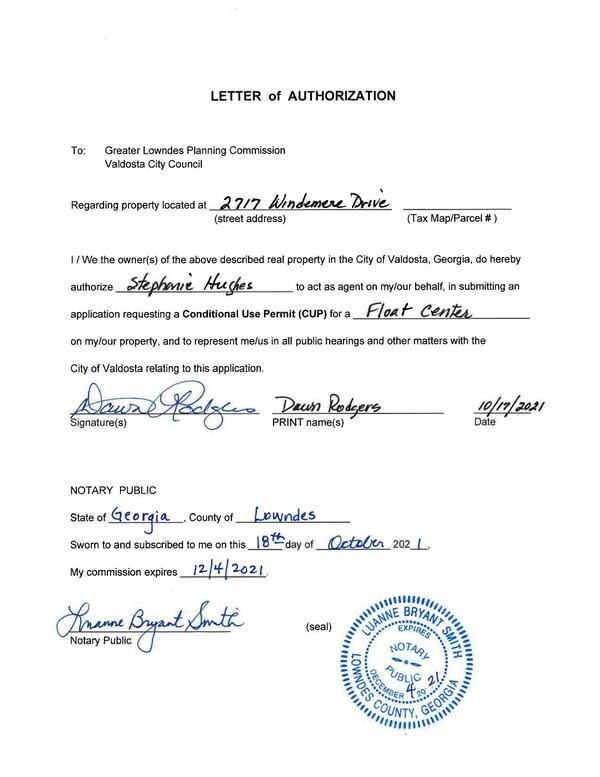 LETTER of AUTHORIZATION
To: Greater Lowndes Planning Commission
Valdosta City Council
Regarding property located at 2717 Windemere Drive
(street address) (Tax Map/Parcel # )
I / We the owner(s) of the above described real property in the City of Valdosta, Georgia, do hereby
authorize Stephanie Hughes to act as agent on my/our behalf, in submitting an
application requesting a Conditional Use Permit (CUP) for a Float Center
on my/our property, and to represent me/us in all public hearings and other matters with the
City of Valdosta relating to this application.
Dawn Rodgers Dawn Rodgers 10/17/2021
Signature(s) PRINT name(s) Date
NOTARY PUBLIC
State of Georgia , County of Lowndes
Sworn to and subscribed to me on this 18th day of October 2021.
My commission expires 12/4/2021.
Luanne Bryant Smith
Notary Public (seal)
LUANNE BRYANT SMITH
EXPIRES
NOTARY
PUBLIC
DECEMBER 4 2021
LOWNDES COUNTY, GEORGIA